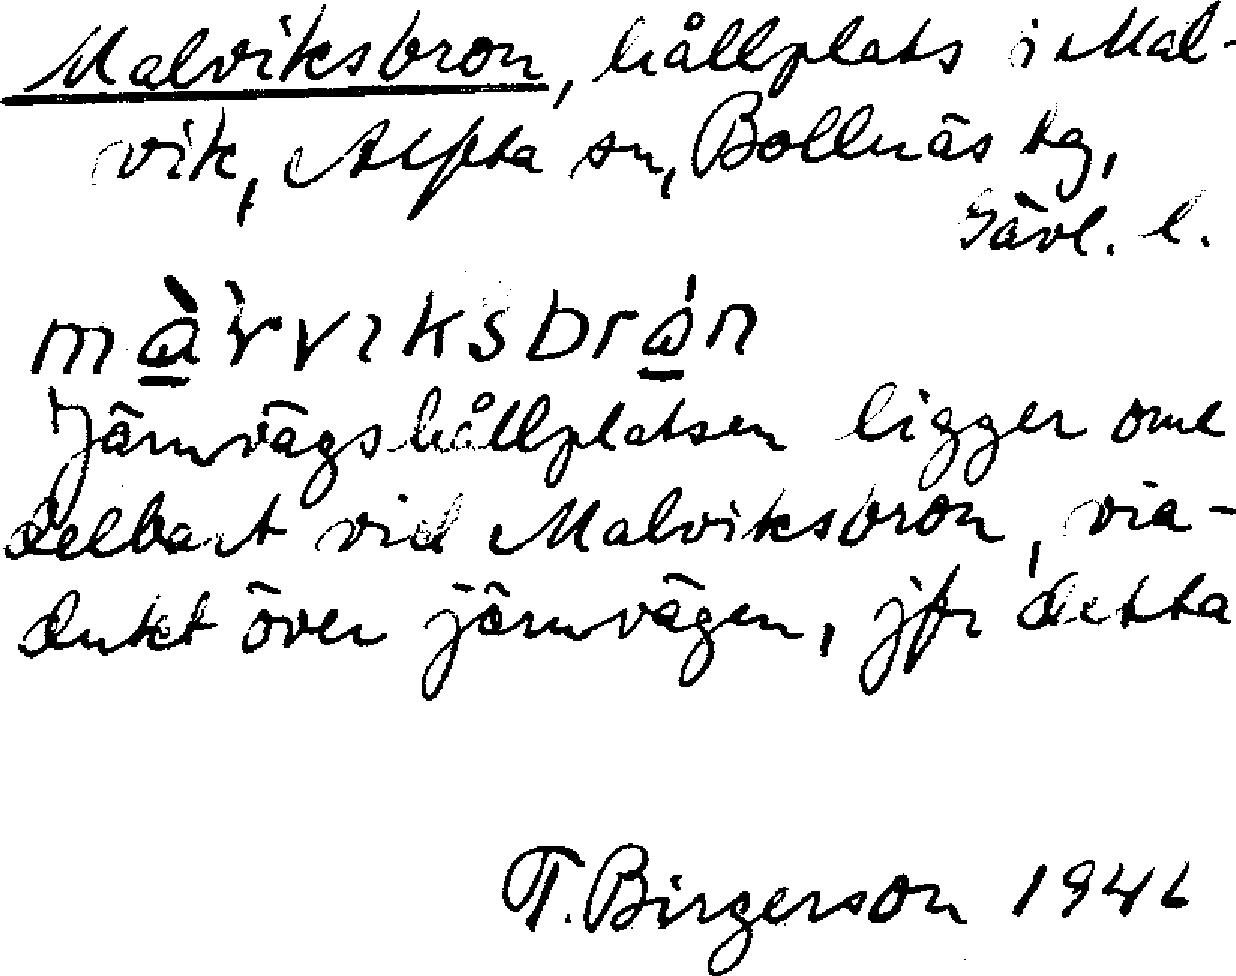 Malviksbron, hållplats i Mal-
vik, Alfta sn, Bollnäs tg,
Gävl. l.
Järnvägshållplatsen ligger ome
delbart vid Malviksbron, via-
dukt över järnvägen, jfr detta
T. Birgerson